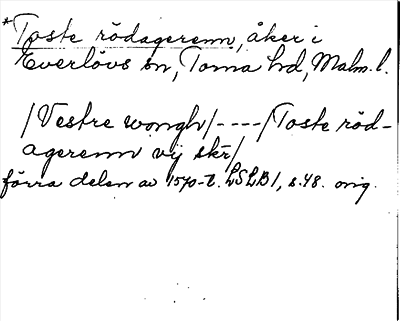 *Toste rödagerenn, åker i
Everlövs sn, Torna hd, Malm. l.
/Vestre wongh/----/Toste röd-
agerenn vij skr/
förra delen av 1570-t. LSLB 1, s. 48. orig.